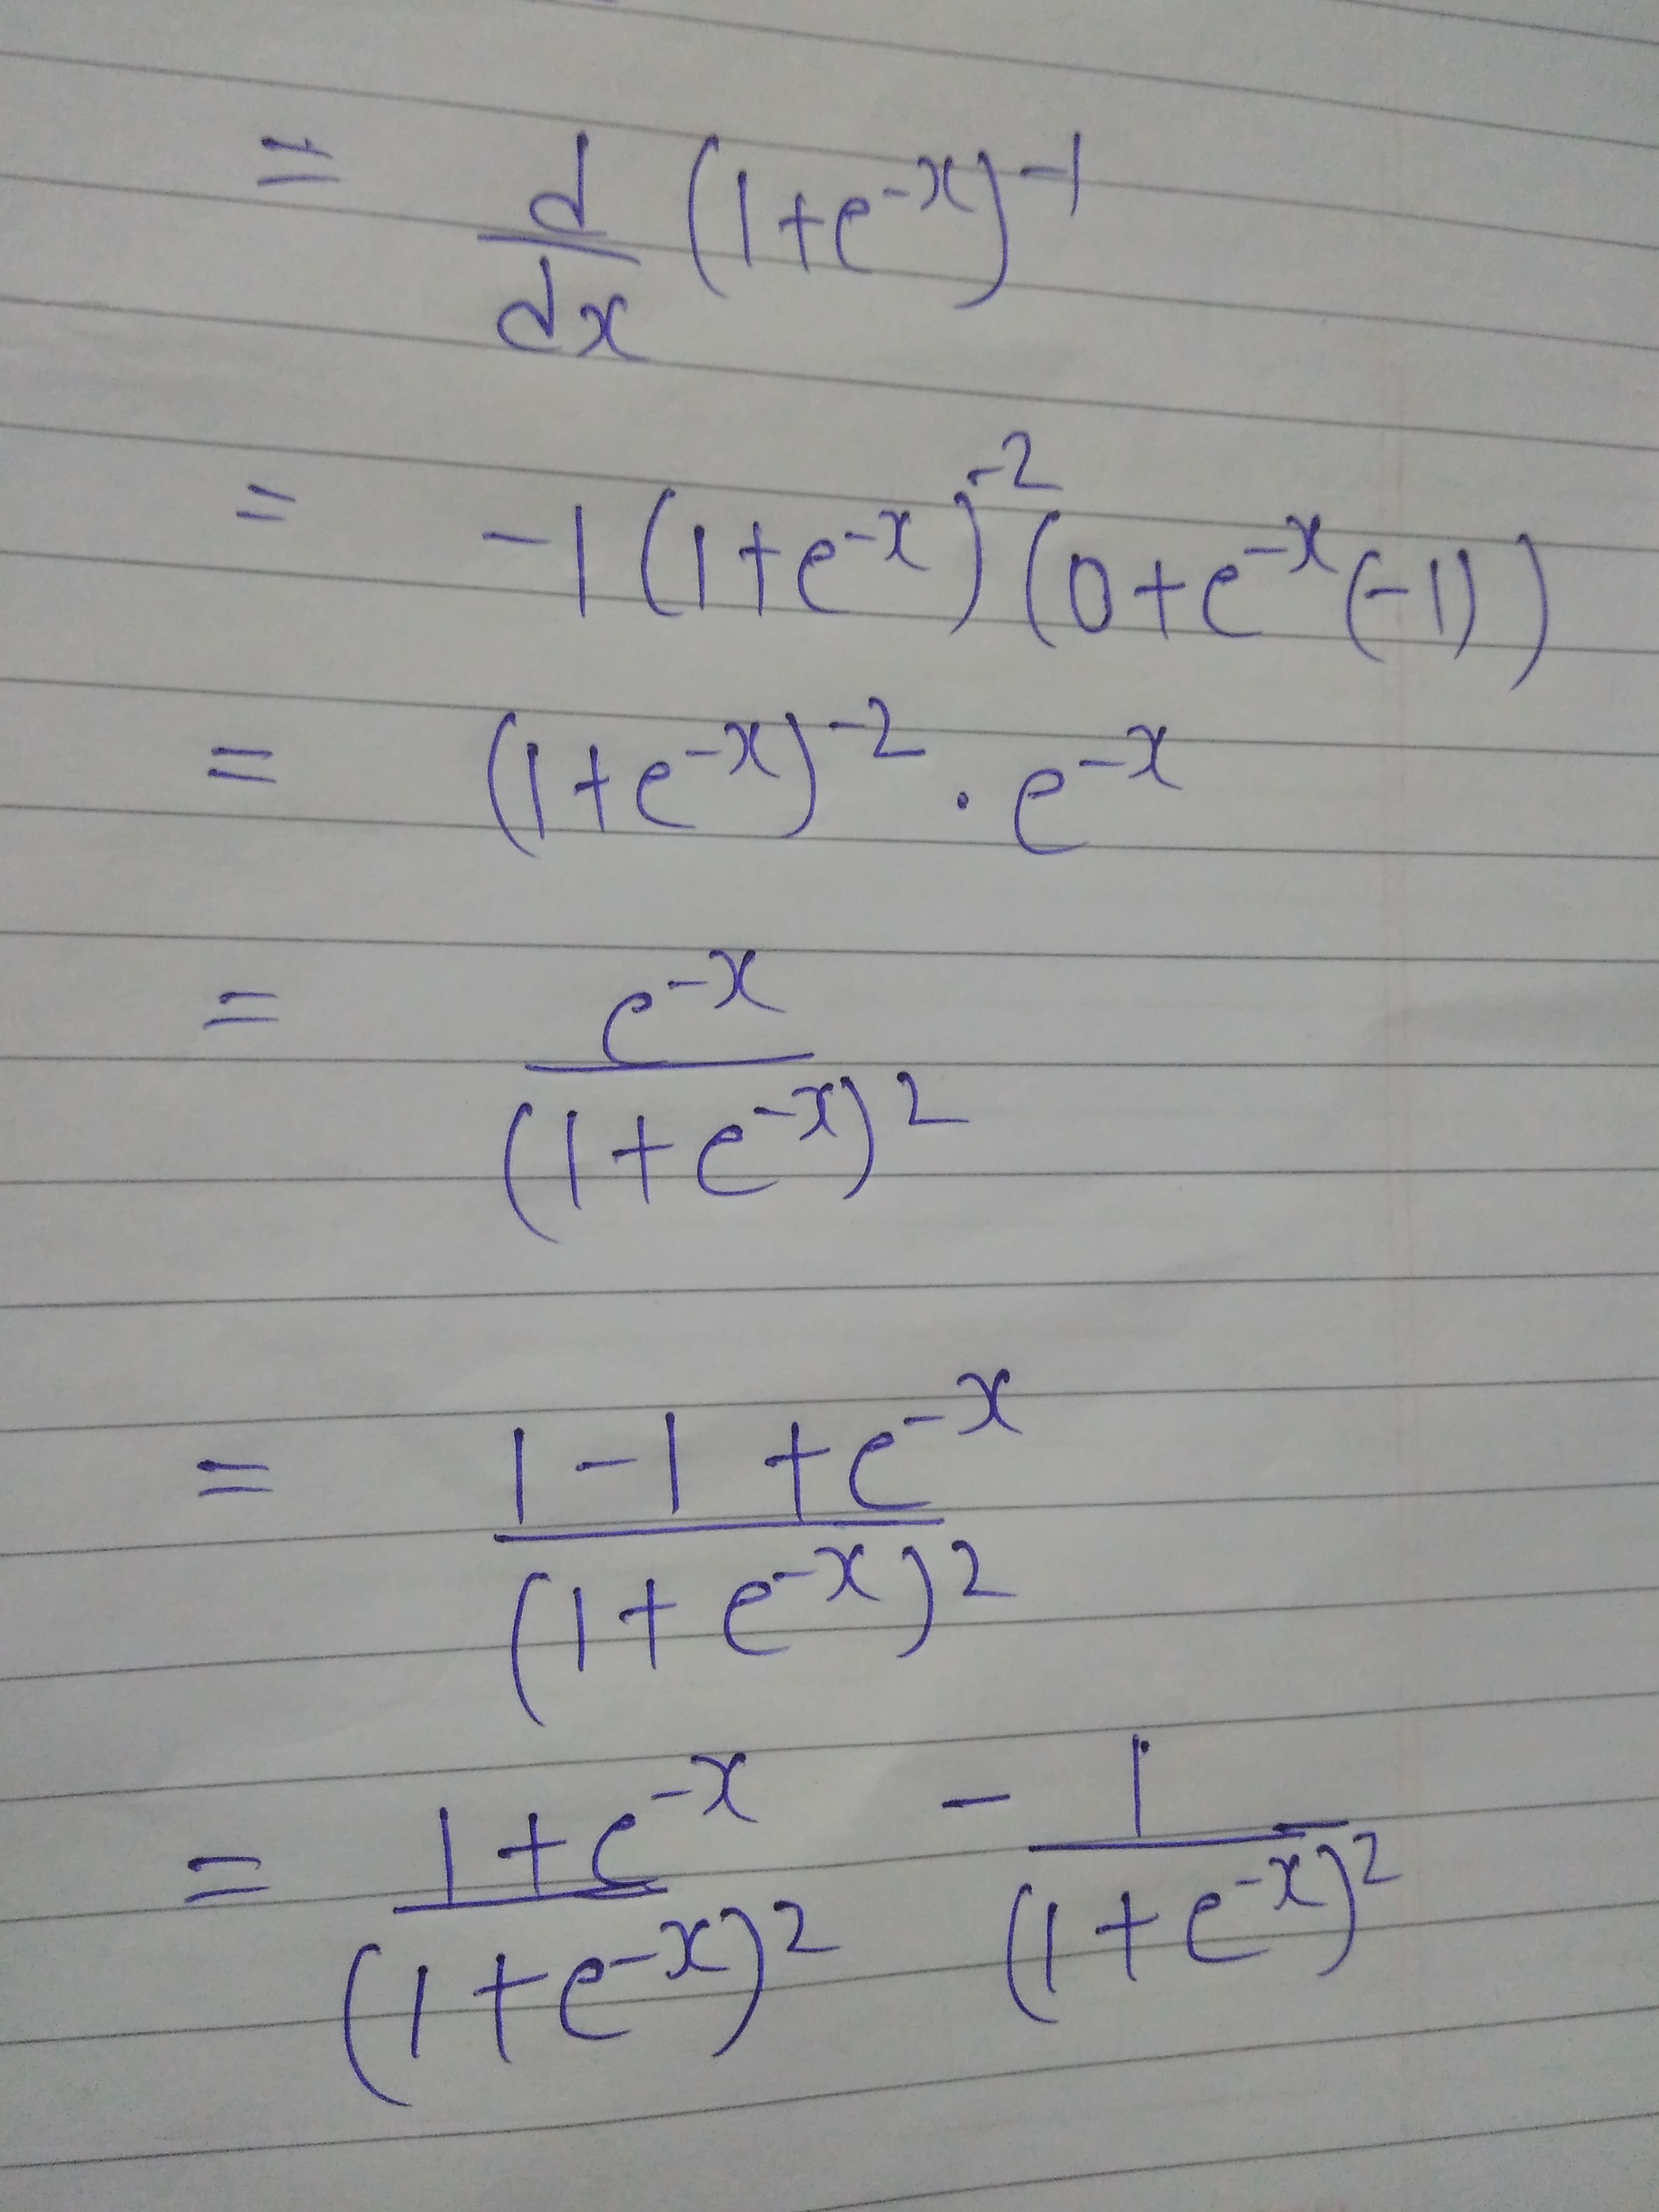 = d/dx (1+e^-x)^-1
= -1(1+e^-x)^-2 (0+e^-x(-1))
= (1+e^-x)^-2 · e^-x
= e^-x / (1+e^-x)^2
= 1-1+e^-x / (1+e^-x)^2
= 1+e^-x / (1+e^-x)^2 - 1 / (1+e^-x)^2